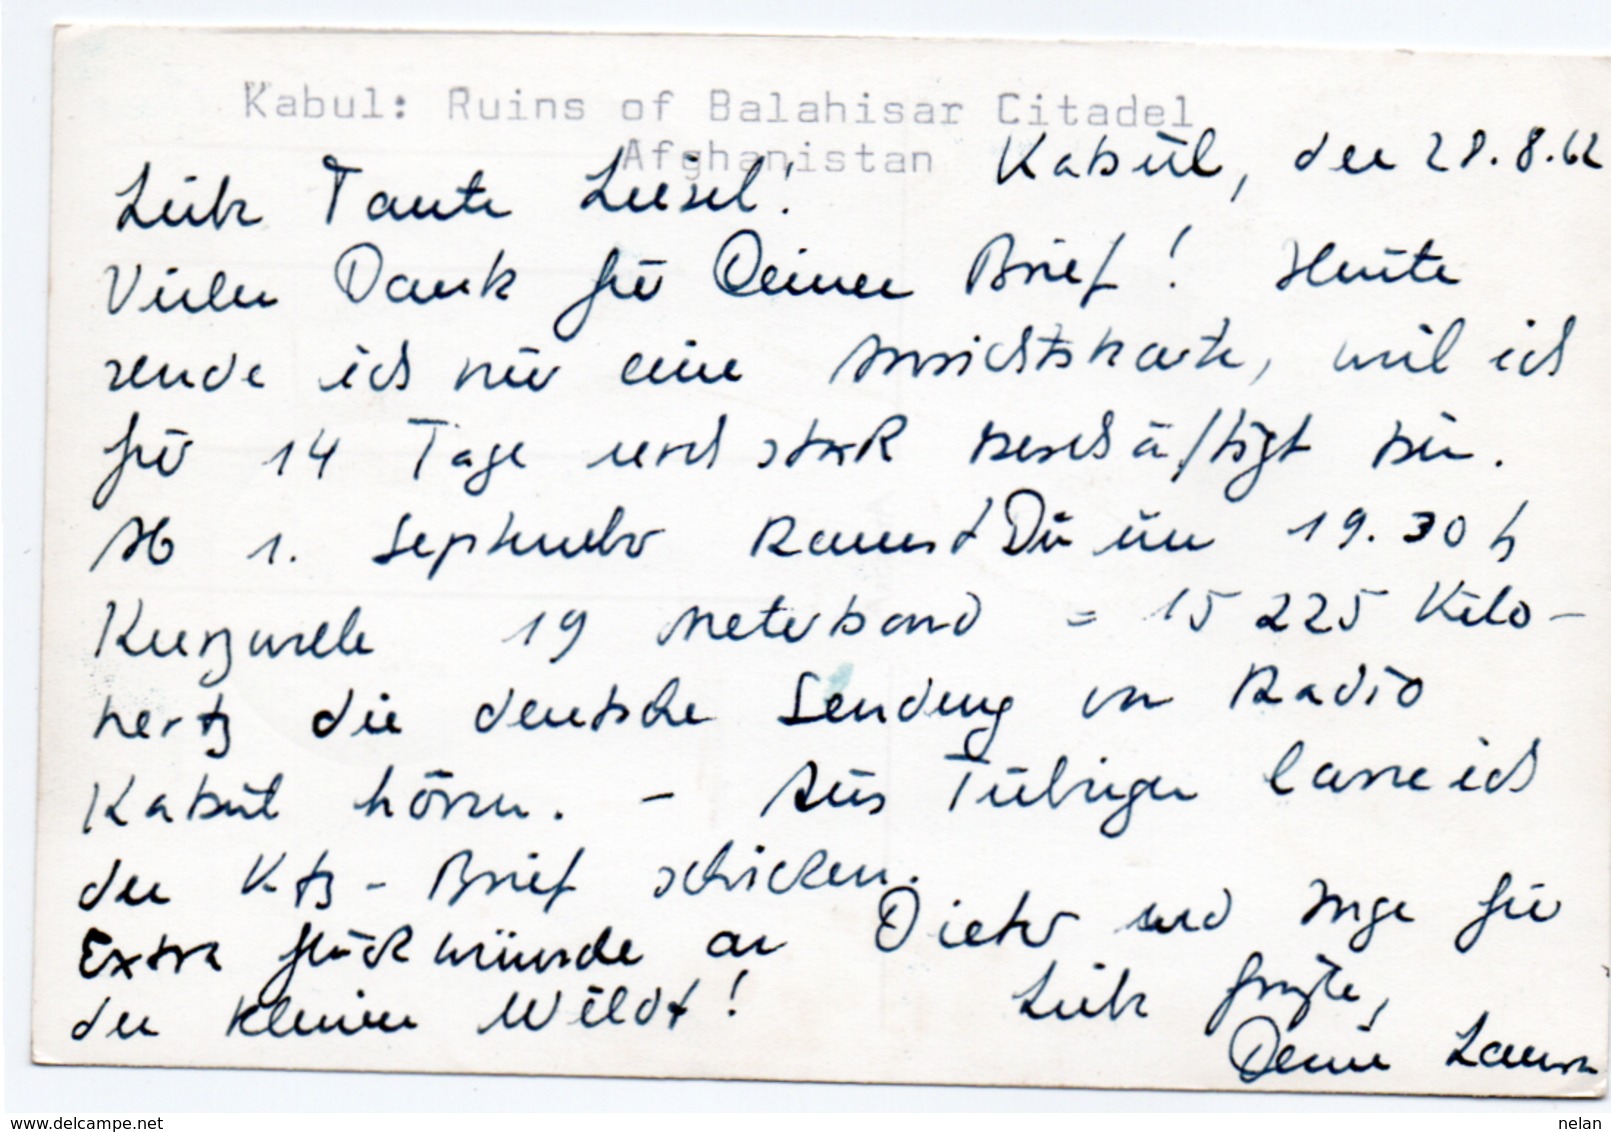 Kabul: Ruins of Balahisar Citadel
Afghanistan
Kabul, den 28.8.62
Liebe Tante Liesel!
Vielen Dank für Deinen Brief! Heute
sende ich nur eine Ansichtskarte, weil ich
für 14 Tage noch stark beschäftigt bin.
Ab 1. September kannst Du um 19.30 h
Kurzwelle 19 Meterband = 15 225 Kilo-
hertz die deutsche Sendung von Radio
Kabul hören. - Aus Tübingen lasse ich
den Kfz-Brief schicken.
Extra Glückwünsche an Dieter und Inge für
den kleinen Wildt!
Liebe Grüße,
Deine
www.delcampe.net
nelan